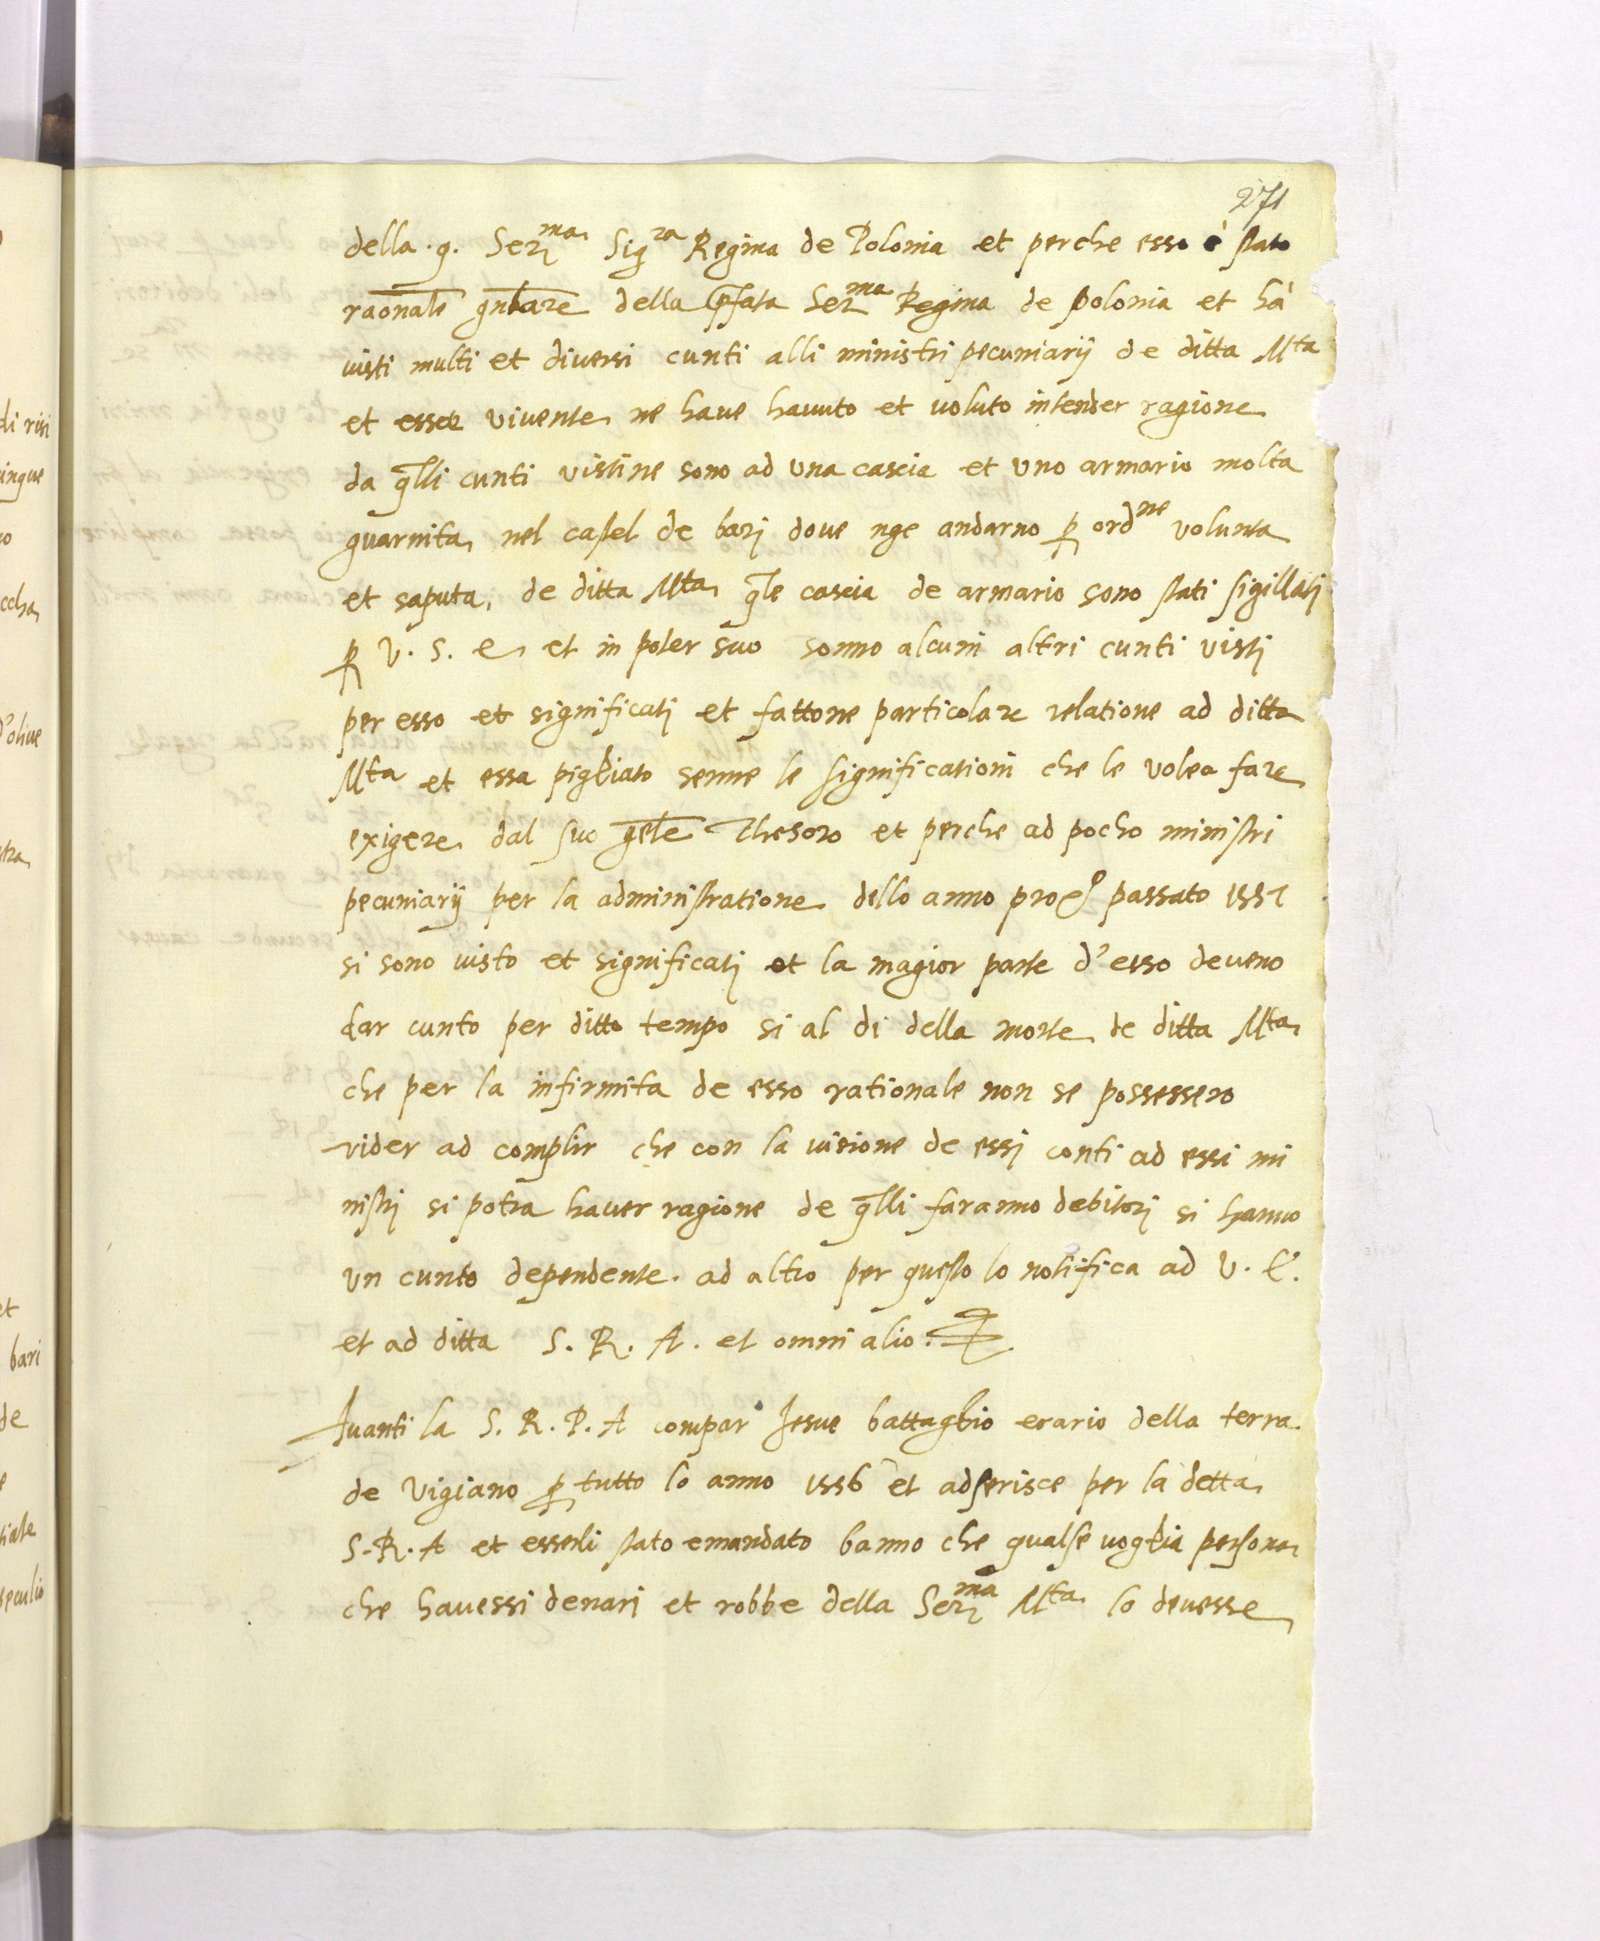 271
della .q. Serma Sigra Regina de Polonia et perche esso è stato
raonale gnlare della pfata Serma Regina de polonia et hà
visti multi et diversi cunti alli ministri pecuniarij de ditta Mta
et essa vivente ne have havuto et voluto intender ragione
da qlli cunti vistine sono ad una cascia et uno armario molta
guarnita nel castel de barj dove nge andarno p ordne volunta
et saputa, de ditta Mta qle cascia de armario sono stati sigillatj
p V. S. e et in poter suo sonno alcuni altri cunti vistj
per esso et significatj et fattone particolare relatione ad ditta
Mta et essa pigliato senne le significationi che le volea fare
exigere dal suo gnle Thesoro et perche ad pocho ministri
pecuniarij per la administratione dello anno prox° passato 1557
si sono visto et significatj et la magior parte d'esso deveno
dar cunto per ditto tempo si al di della morte de ditta Mta
che per la infirmita de esso rationale non se possessero
vider ad complir che con la visione de essj conti ad essi mi
nistrj si potra haver ragione de qlli faranno debitorj si hanno
un cunto dependente. ad altro per questo lo notifica ad V. E.
et ad ditta S. R. A. et omni alio.
Avanti la S. R. P. A compar Jesue battaglio erario della terra.
de Vigiano p tutto lo anno 1556 et adserisce per la detta
S. R. A et esserli stato emandato banno che qualse voglia persona
che havessi denarj et robbe della Serma Mta lo devesse
di risi
ingue
ccha
d'olive
stra
et
bari
de
e
tiale
speculio